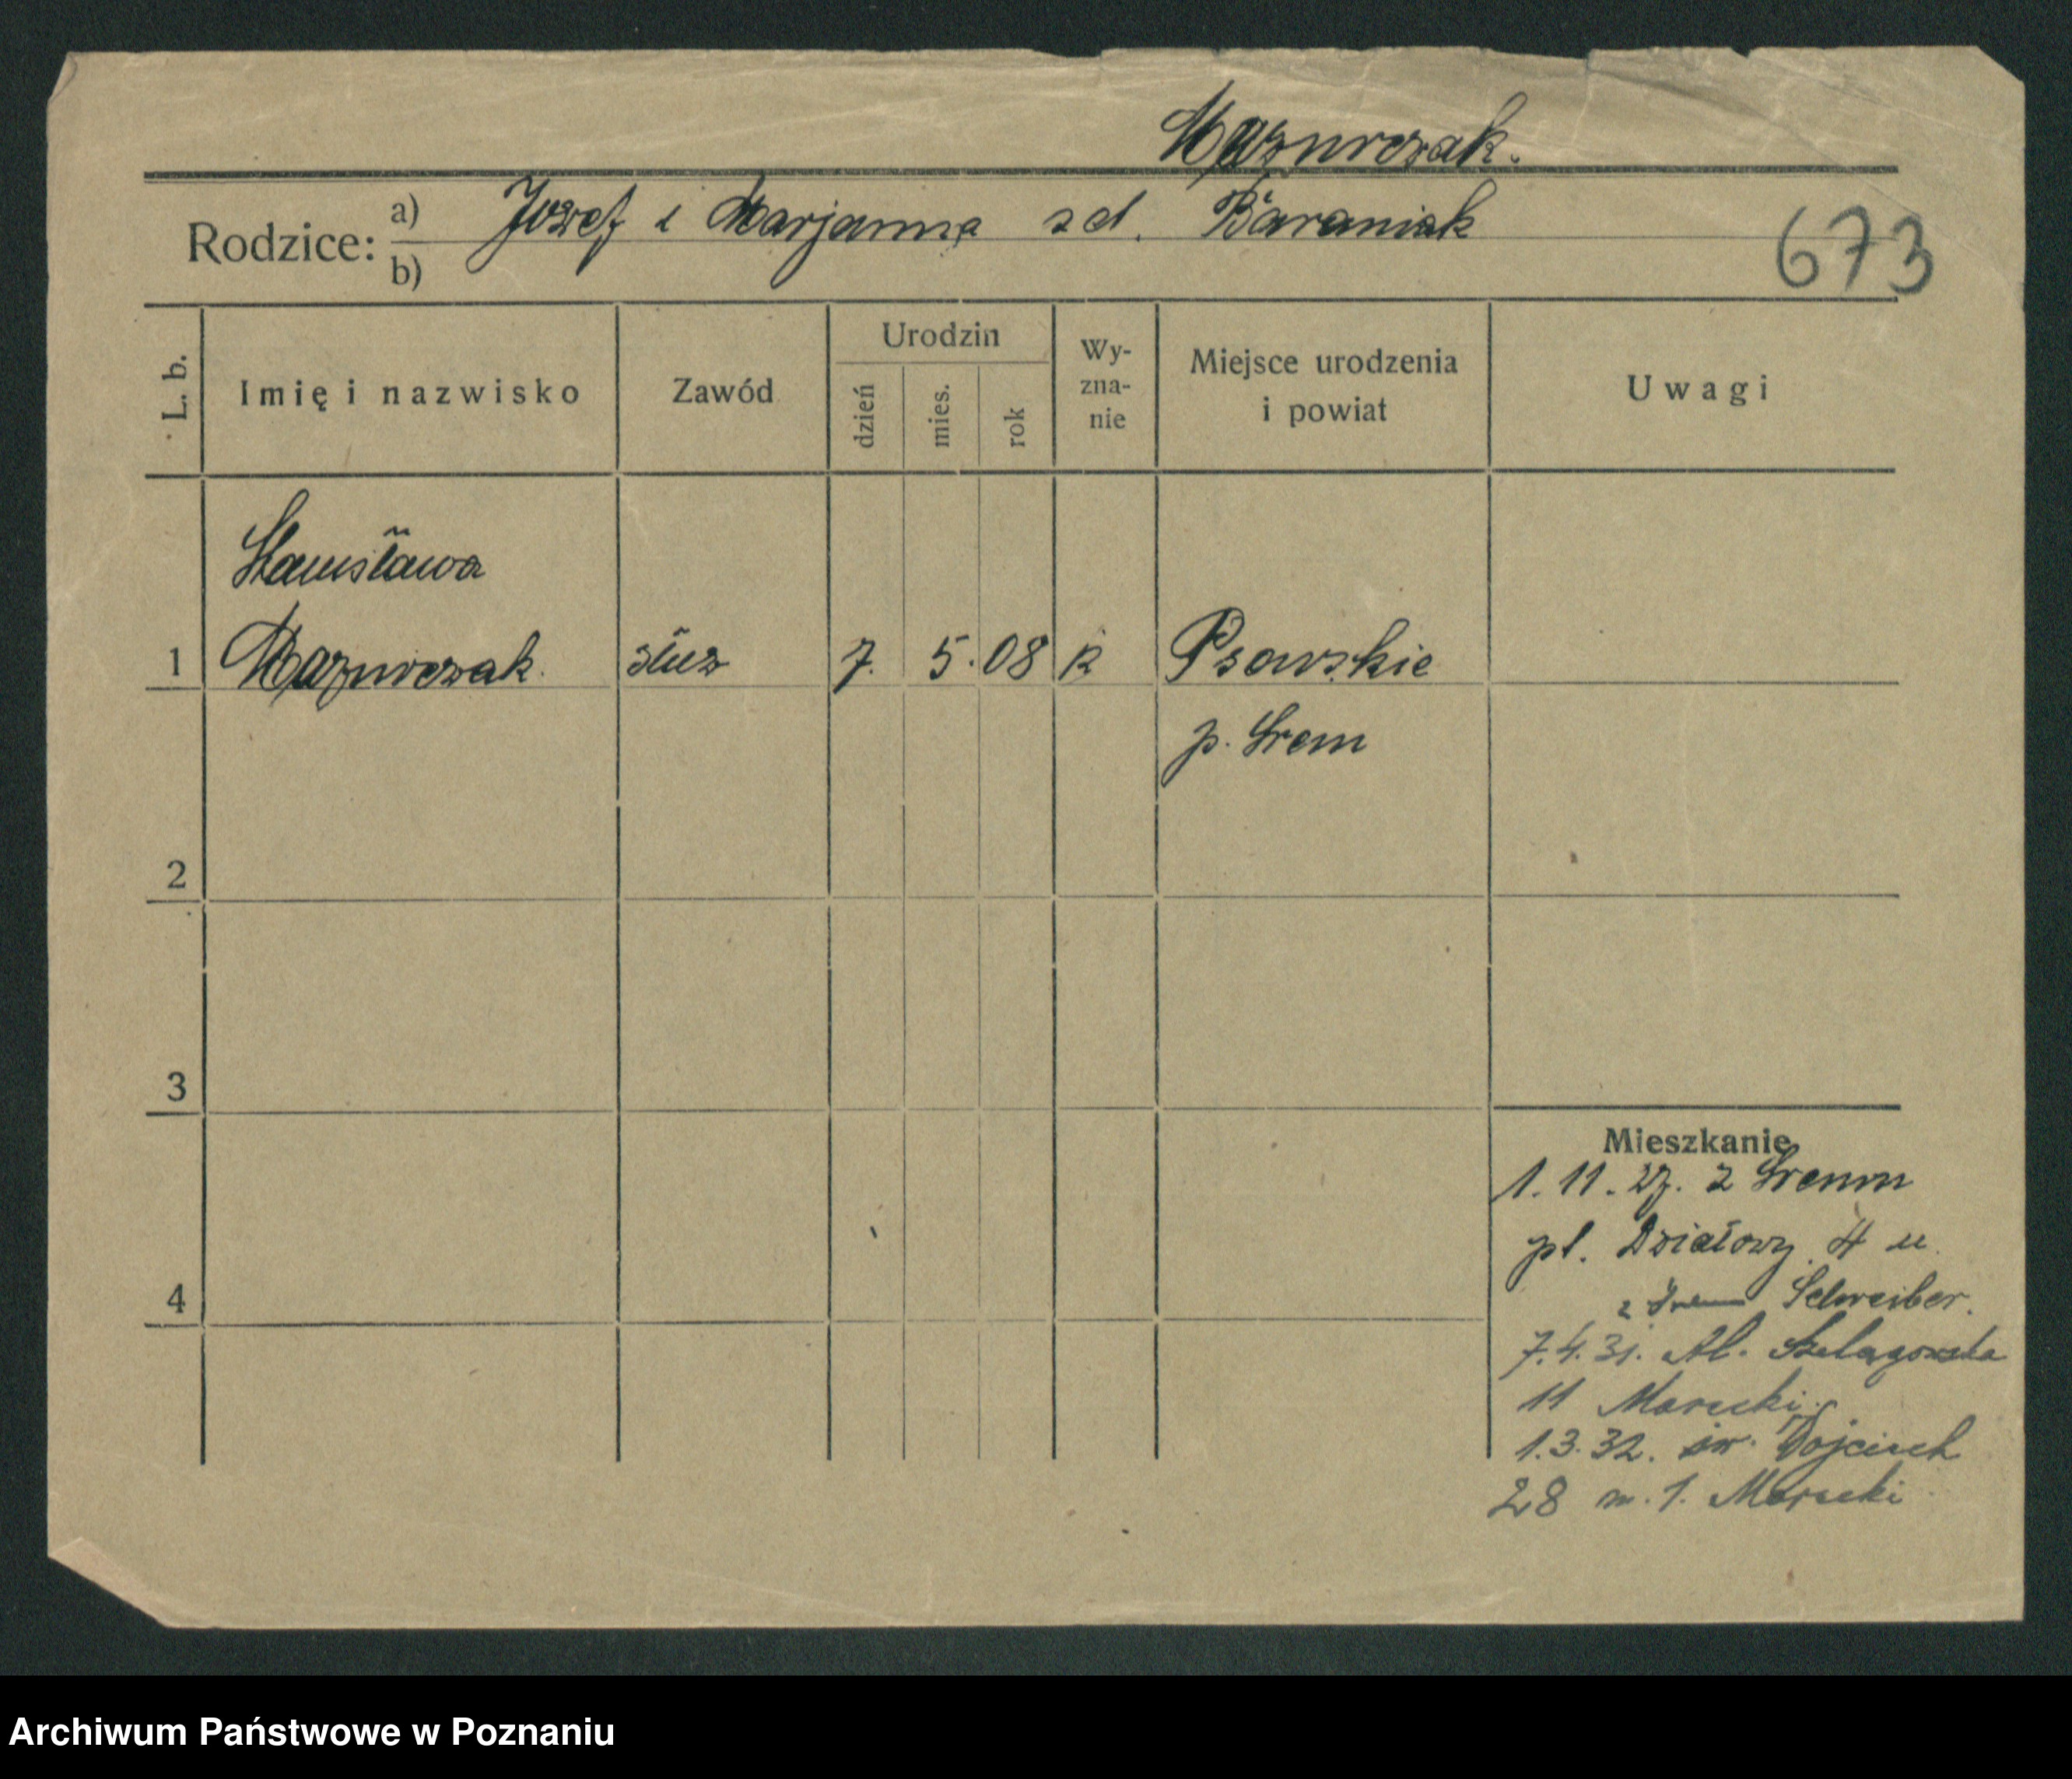 Mazurczak.
Rodzice: a) Józef i Marjanna zd. Baraniak
b)
673
L. b. Imię i nazwisko Zawód Urodzin dzień mies. rok Wy-zna-nie Miejsce urodzenia i powiat Uwagi
Stanisława
1 Mazurczak. służ 7. 5. 08 k Psarskie
p. Śrem
2
3
Mieszkanie
1. 11. 27. z Śremu
pl. Działowy 4 u
4 z Schreiber.
7.4.31. Al. Szelągowska
11 Marecki.
1.3.32. św. Wojciech
28 m. 1. Marecki
Archiwum Państwowe w Poznaniu